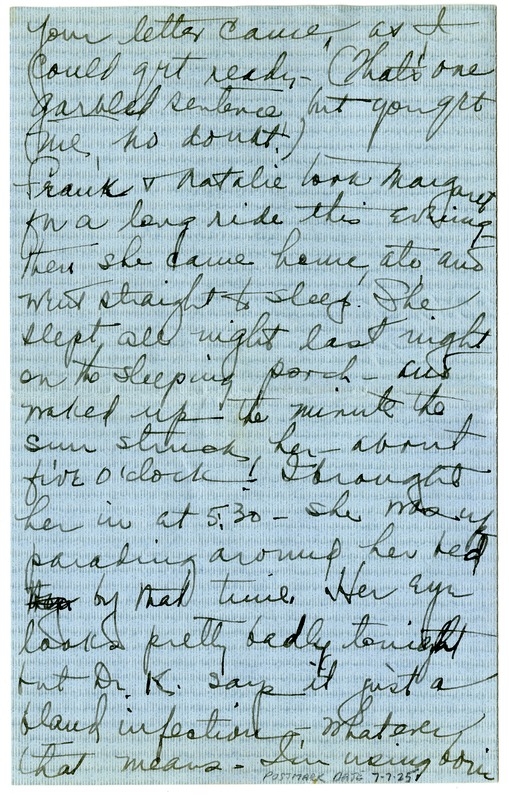 your letter came, as I
could get ready - (That's one
garbled sentence, but you get
me, no doubt!)
Frank & Natalie took Margaret
for a long ride this evening -
then she came home, ate, and
went straight to sleep. She
slept all night last night
on the sleeping porch - and
waked up the minute the
sun struck her - about
five o'clock! I brought
her in at 5:30 - she was up
parading around her bed
by that time. Her eye
looks pretty badly tonight
but Dr. K. says it just a
bland infection - whatever
that means - I'm using
POSTMARK DATE 7-7-25